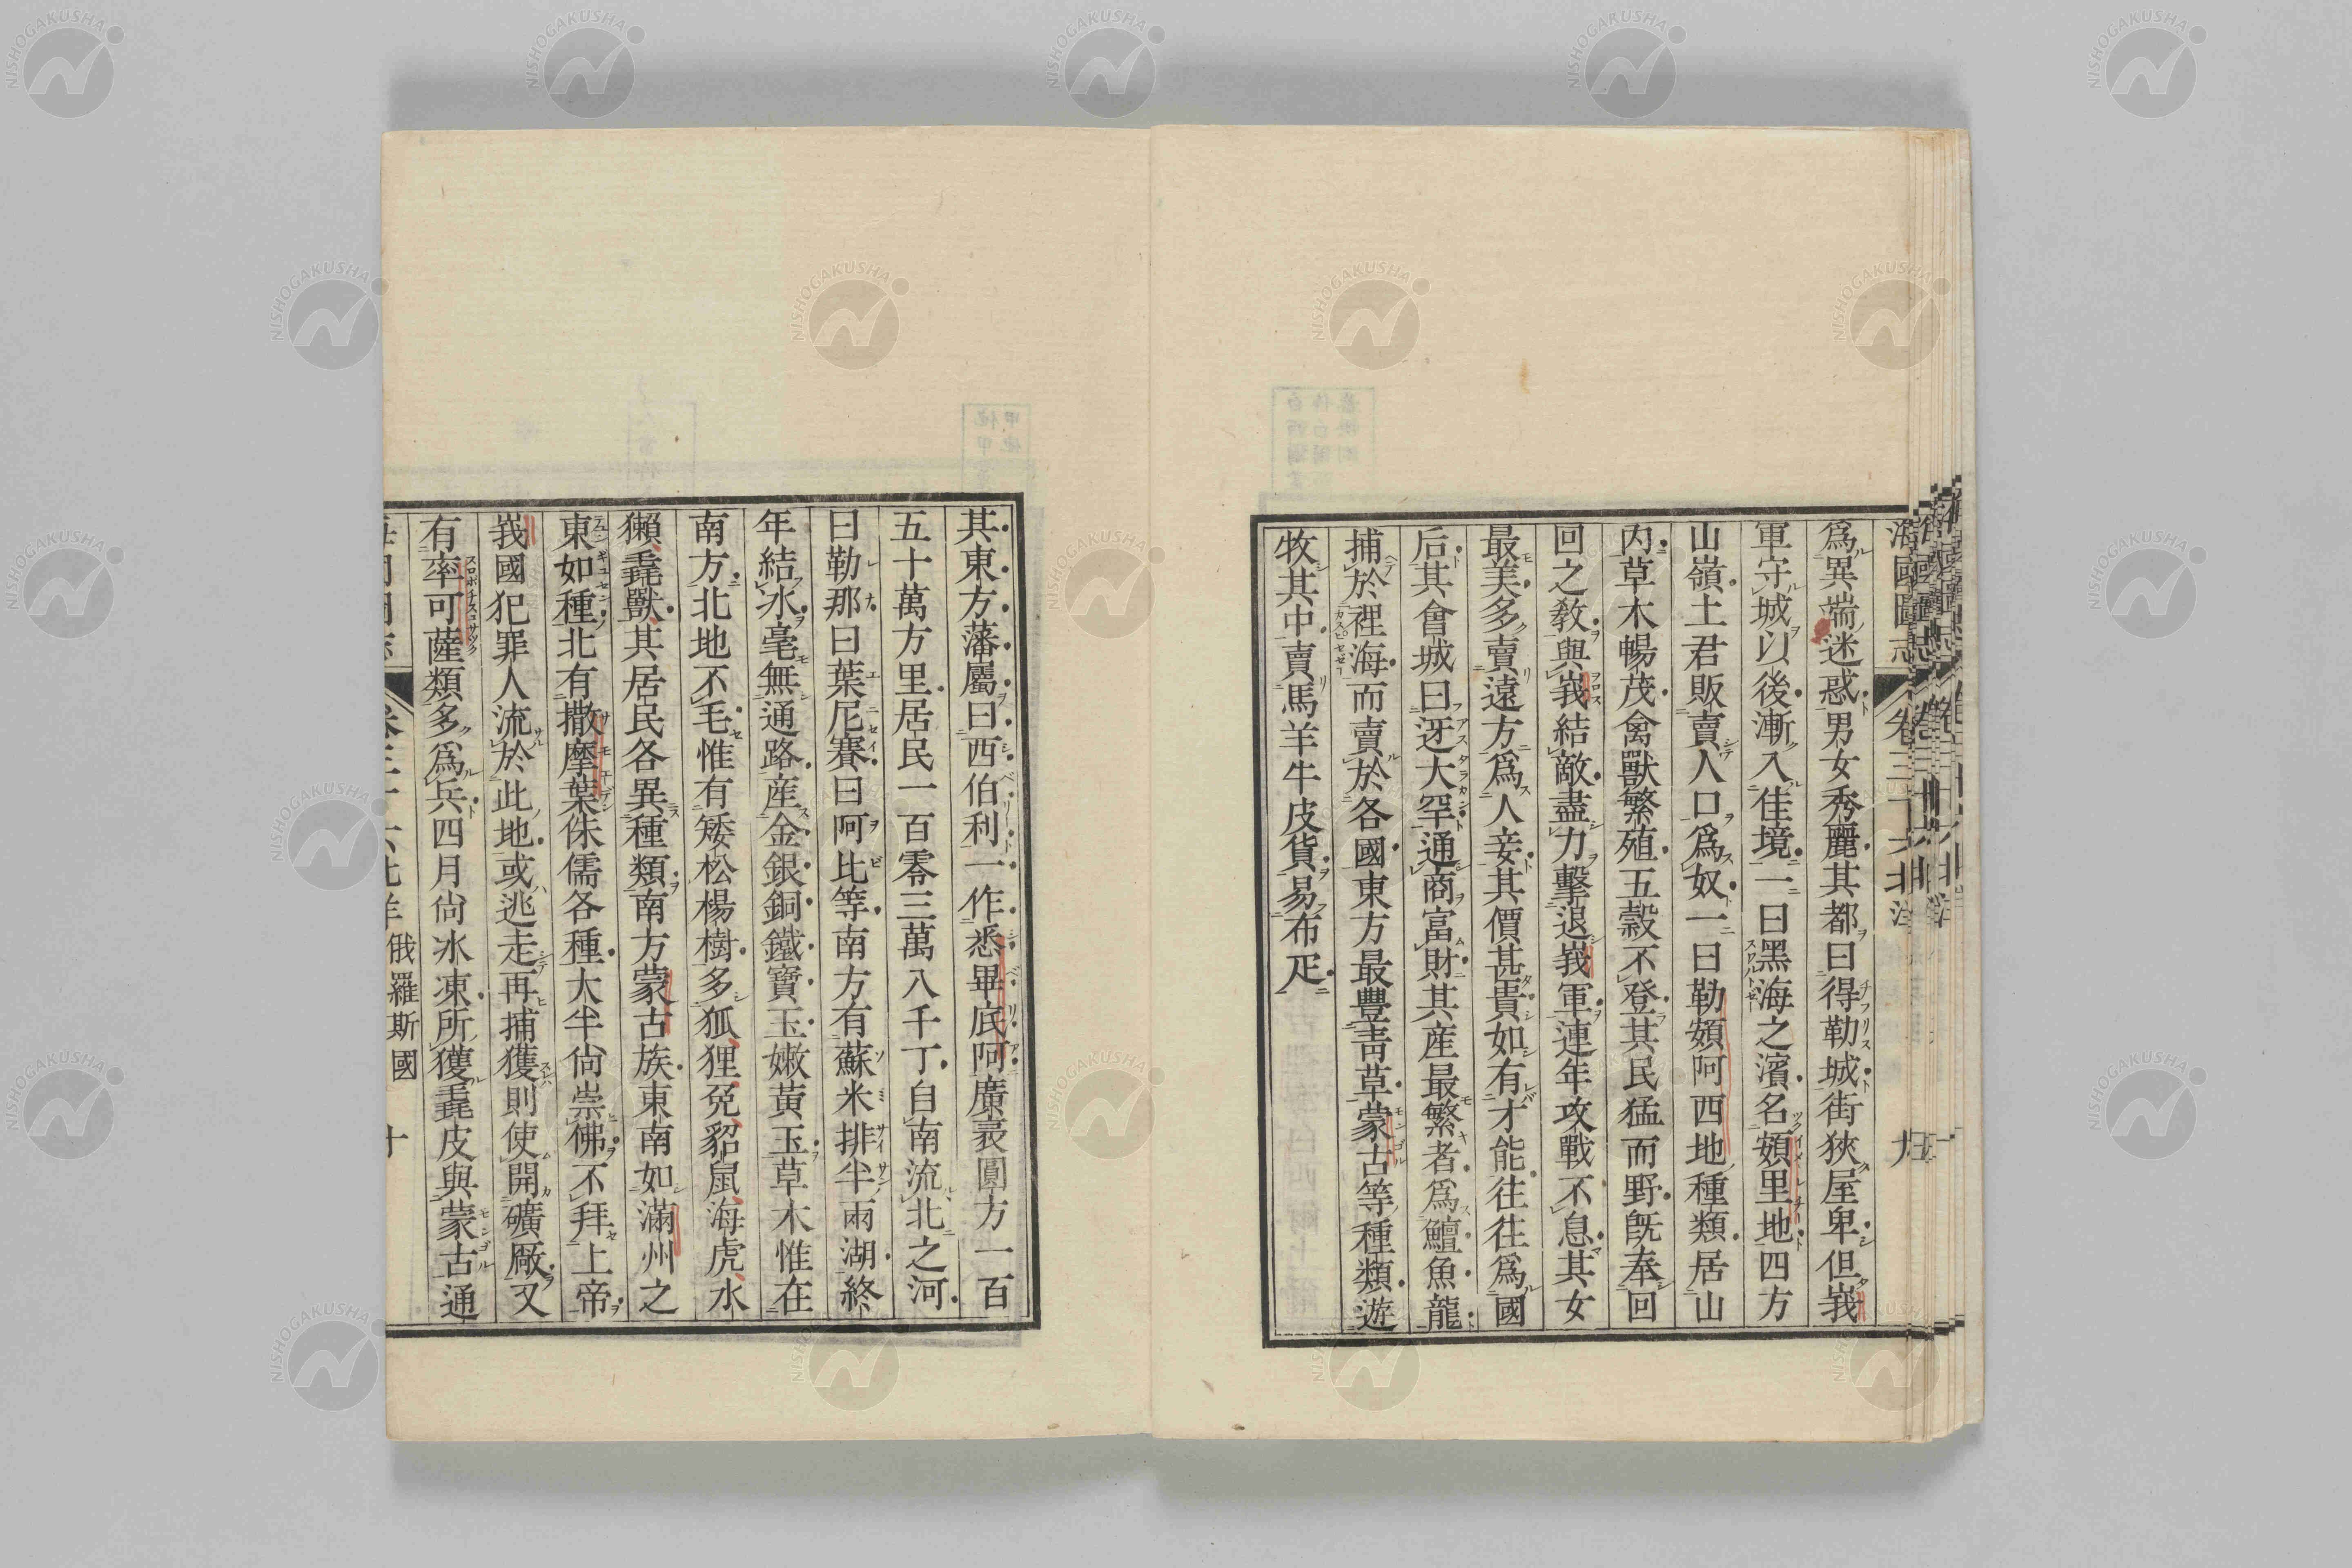 爲異端迷惑男女秀麗其都曰得勒城街狹屋卑但峩
軍守城以後漸入佳境一曰黑海之濱名頞里地四方
山嶺土君販賣人口爲奴一曰勒頞阿西地種類居山
内草木暢茂禽獸繁殖五穀不登其民猛而野旣奉回
回之敎與峩結敵盡力擊退峩軍連年攻戰不息其女
最美多賣遠方爲人妾其價甚貴如有才能往往爲國
后其會城曰迓大罕通商富財其産最繁者爲鱣魚龍
捕於裡海而賣於各國東方最豐靑草蒙古等種類遊
牧其中賣馬羊牛皮貨易布疋
其東方藩屬曰西伯利一作悉畢底阿廣袤圓方一百
五十萬方里居民一百零三萬八千丁自南流北之河
曰勒那曰葉尼賽曰阿比等南方有蘇米排半兩湖終
年結氷毫無通路産金銀銅鐵寶玉嫩黃玉草木惟在
南方北地不毛惟有矮松楊樹多狐狸兔貂鼠海虎水
獺毳獸其居民各異種類南方蒙古族東南如滿州之
東如種北有撒摩葉侏儒各種大半尙崇佛不拜上帝
峩國犯罪人流於此地或逃走再捕獲則使開礦厰又
有率可薩類多爲兵四月尙氷凍所獲毳皮與蒙古通
俄羅斯國
十
NISHOGAKUSHA